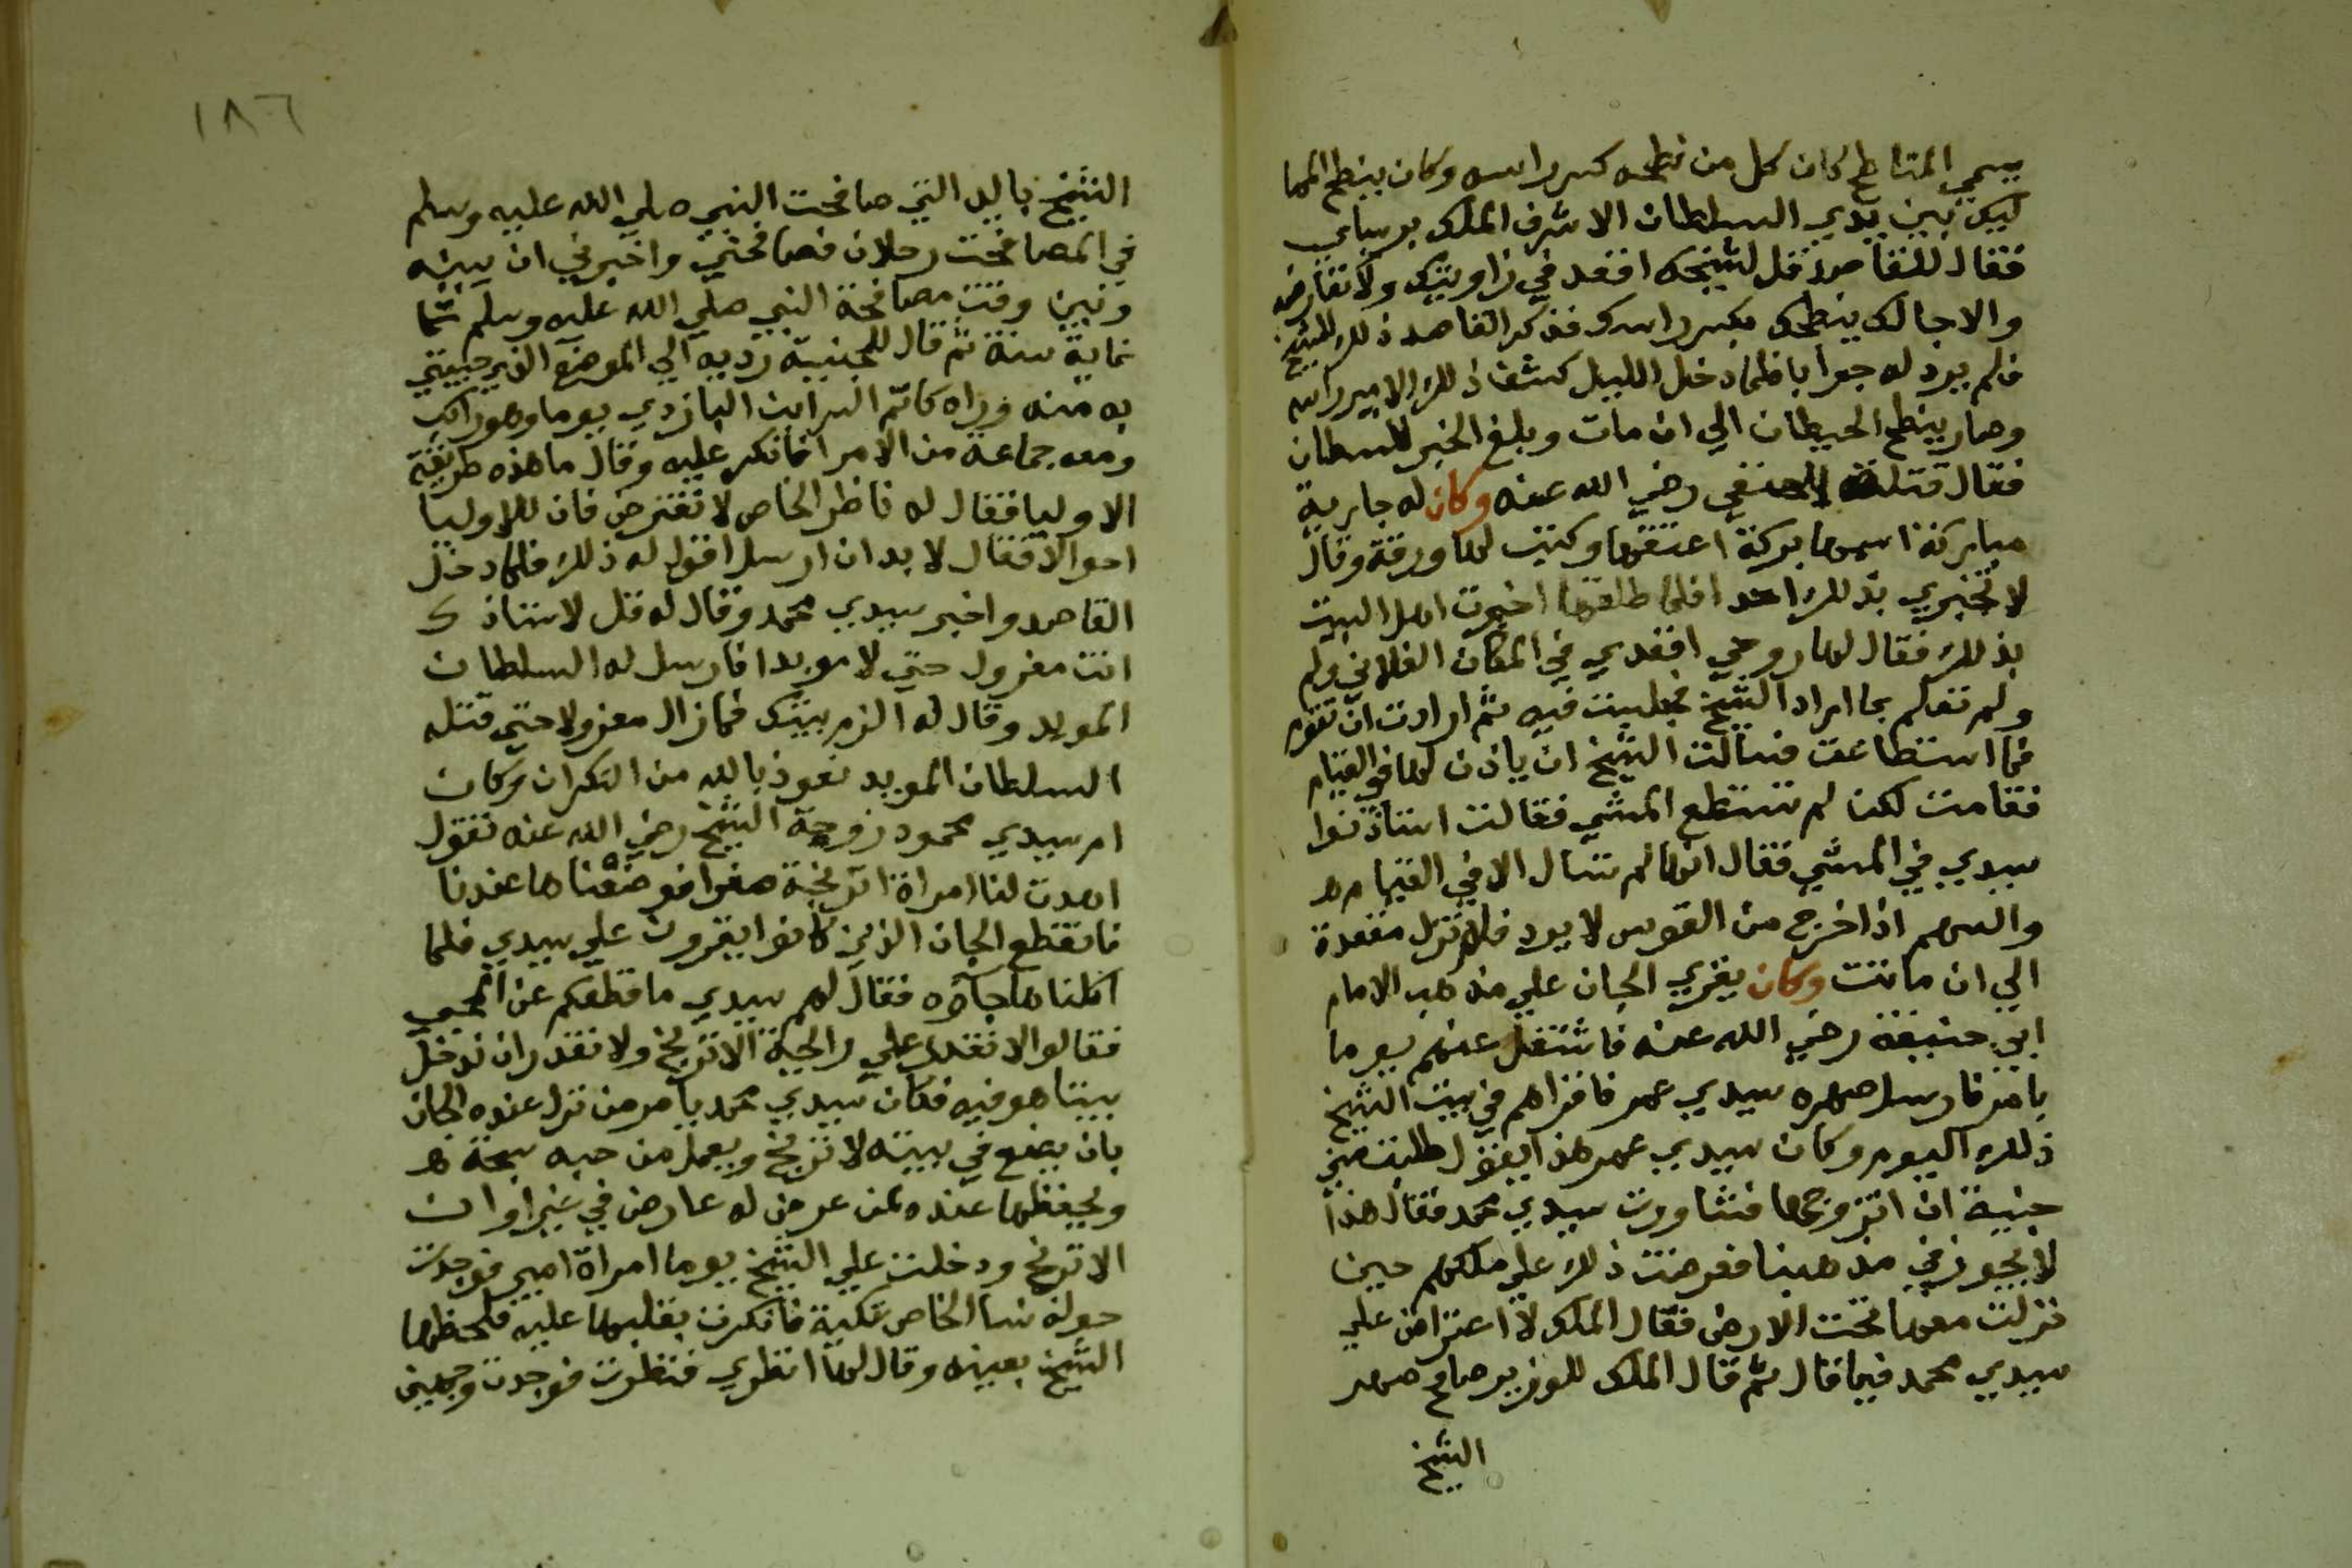 يسمي المناطح كان كل من نطحه كسر راسه وكان ينطح المما
ليك بين يدي السلطان الاشرف الملك برسباي
فقال للقاصد قل لشيخك اقعد في زاويتك ولا تعارض
والا جا لك ينطحك يكسر راسك فذكر القاصد ذلك للشيخ
فلم يرد له جوابا فلما دخل الليل كشف ذلك الامير راسه
وصار ينطح الحيطان الي ان مات وبلغ الخبر للسلطان
فقال قتله الحنفي رضي الله عنه وكان له جارية
مباركة اسمها بركة اعتقها وكتب لها ورقة وقال
لا تخبري بذلك احدا فلما طلقها اخبرت اهل البيت
بذلك فقال لها روحي اقعدي في المكان الفلاني ولم
ولم تعلم بما اراد الشيخ فجلست فيه ثم ارادت ان تقوم
فما استطاعت فسالت الشيخ ان ياذن لها في القيام
فقامت لكن لم تستطع المشي فقالت استاذنوا
سيدي في المشي فقال انها لم تسال الا في القيام
والسهم اذا خرج من القوس لا يرد فلم تزل مقعدة
الي ان ماتت وكان يقري الجان علي مذهب الامام
ابي حنيفة رضي الله عنه فاشتغل عنهم يوما
بامر فارسل صهره سيدي عمر فاقراهم في بيت الشيخ
ذلك اليوم وكان سيدي عمر هذا يقول طلبت مني
جنية ان اتزوجها فشاورت سيدي محمد فقال هذا
لا يجوز في مذهبنا فعرضت ذلك علي ملكهم حين
نزلت معها تحت الارض فقال الملك لا اعتراض علي
سيدي محمد فيما قال ثم قال الملك للوزير صافح صهر
الشيخ
١٨٦
الشيخ باليد التي صافحت النبي صلي الله عليه وسلم
في المصافحة رجلان فصافحني واخبرني ان بينه
وبين وقت مصافحة النبي صلي الله عليه وسلم ثما
نماية سنة ثم قال للجنية رديه الي الموضع الذي جيتي
به منه وراه كاتم السر ابن البازري يوما وهو راكب
ومعه جماعة من الامرا فانكر عليه وقال ما هذه طريقة
الاوليا فقال له ناظر الخاص لا تعترض فان للاوليا
احوالا فقال لا بد ان ارسل اقول له ذلك فلما دخل
القاصد واخبر سيدي محمد وقال له قل لاستاذك
انت معزول حتي لا موبدا فارسل له السلطان
المويد وقال له الزم بيتك فما زال معزولا حتي قتله
السلطان المويد نعوذ بالله من النكران وكان
ام سيدي محمود زوجة الشيخ رضي الله عنه تقول
اهدت لنا امراة اترنجة صفرا فوضعناها عندنا
فانقطع الجان الذين كانوا يقرون علي سيدي فلما
اكلناها جاوه فقال لهم سيدي ما قطعكم عن المجي
فقالوا لا نقدر علي رايحة الاترنج ولا نقدر ان ندخل
بيتا هو فيه فكان سيدي محمد يامر من نزل عنده الجان
بان يضع في بيته لاترنج ويعمل من حبه سبحة
ويحفظها عنده لمن عرض له عارض في غير اوان
الاترنج ودخلت علي الشيخ يوما امراة امير فوجدت
حوله نسا الخاص تكبة فانكرت بقلبها عليه فلحظها
الشيخ بعينه وقال لها انظري فنظرت فوجدت وجههن